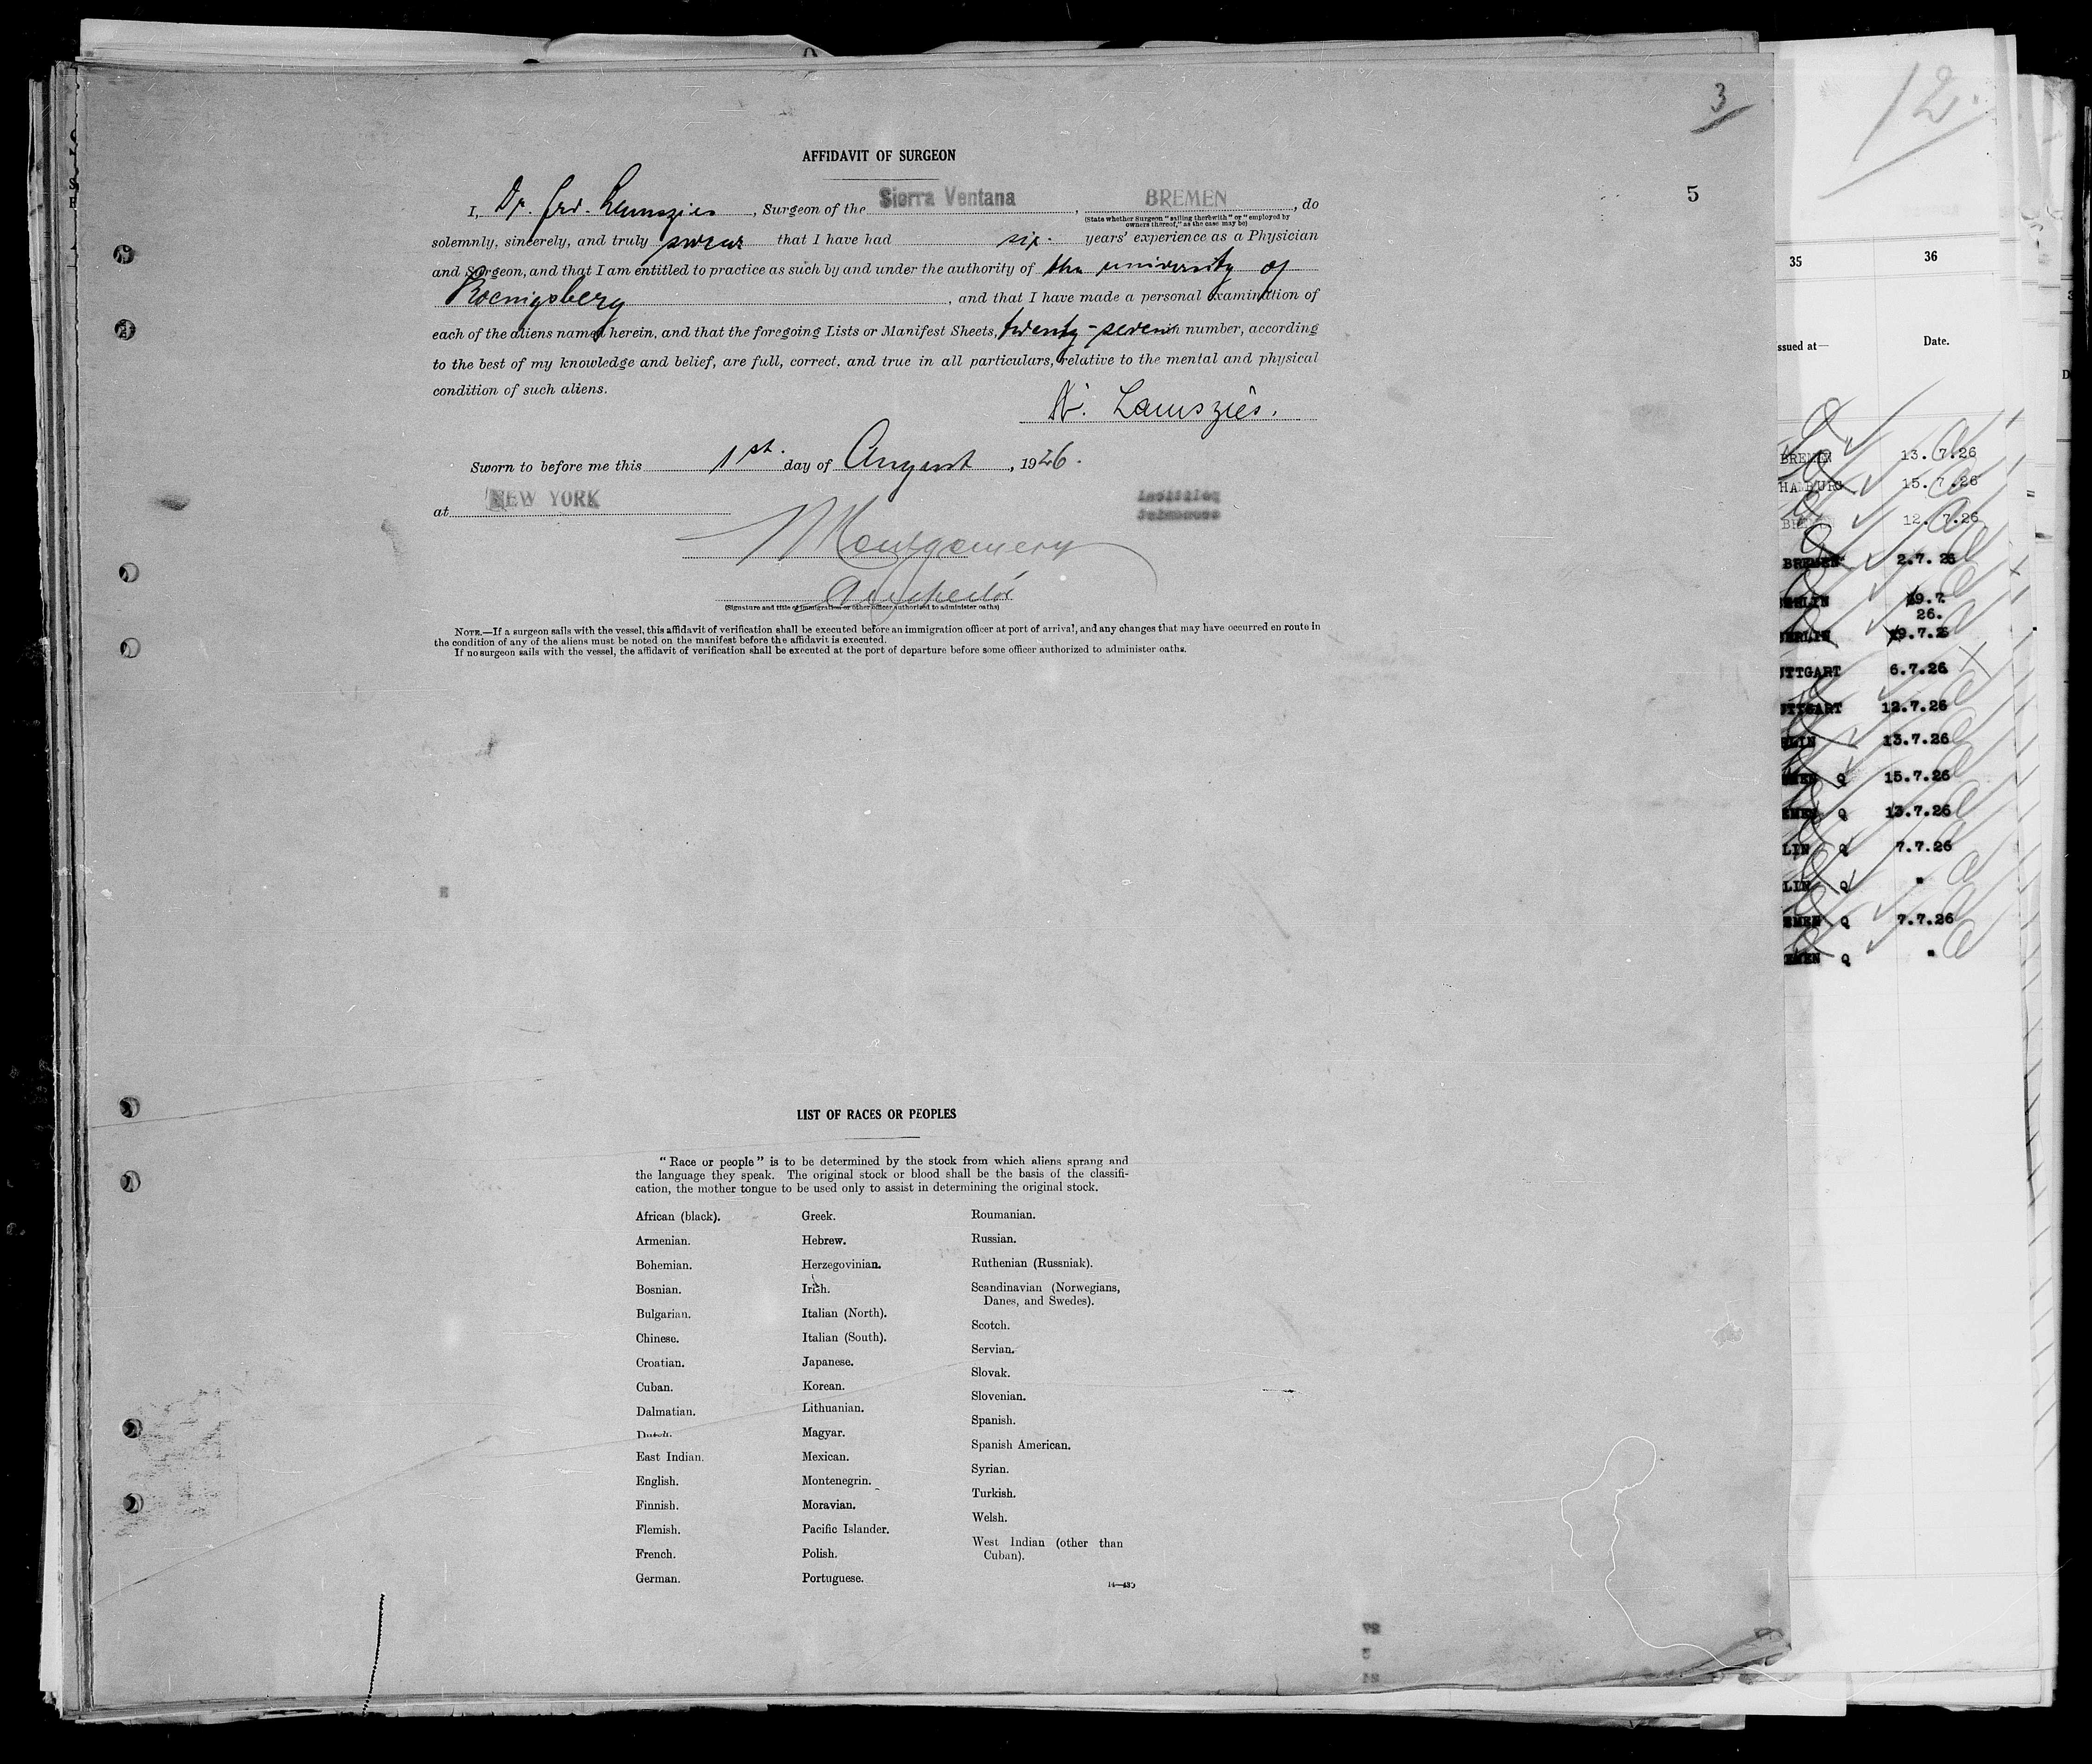 3
12.
5
AFFIDAVIT OF SURGEON
I, Dr. , Surgeon of the Sierra Ventana, BREMEN, do
(State whether Surgeon "sailing therewith" or "employed by
owners thereof," as the case may be)
solemnly, sincerely, and truly swear that I have had six. years' experience as a Physician
and Surgeon, and that I am entitled to practice as such by and under the authority of the university of
Koenigsberg, and that I have made a personal examination of
each of the aliens named herein, and that the foregoing Lists or Manifest Sheets, twenty-seven in number, according
to the best of my knowledge and belief, are full, correct, and true in all particulars, relative to the mental and physical
condition of such aliens.
Sworn to before me this 1st. day of August, 1926.
at NEW YORK
Montgomery
Inspector
(Signature and title of immigration or other officer authorized to administer oaths)
NOTE.—If a surgeon sails with the vessel, this affidavit of verification shall be executed before an immigration officer at port of arrival, and any changes that may have occurred en route in
the condition of any of the aliens must be noted on the manifest before the affidavit is executed.
If no surgeon sails with the vessel, the affidavit of verification shall be executed at the port of departure before some officer authorized to administer oaths.
LIST OF RACES OR PEOPLES
"Race or people" is to be determined by the stock from which aliens sprang and
the language they speak. The original stock or blood shall be the basis of the classifi-
cation, the mother tongue to be used only to assist in determining the original stock.
African (black).
Armenian.
Bohemian.
Bosnian.
Bulgarian.
Chinese.
Croatian.
Cuban.
Dalmatian.
Dutch.
East Indian.
English.
Finnish.
Flemish.
French.
German.
Greek.
Hebrew.
Herzegovinian.
Irish.
Italian (North).
Italian (South).
Japanese.
Korean.
Lithuanian.
Magyar.
Mexican.
Montenegrin.
Moravian.
Pacific Islander.
Polish.
Portuguese.
Roumanian.
Russian.
Ruthenian (Russniak).
Scandinavian (Norwegians,
Danes, and Swedes).
Scotch.
Servian.
Slovak.
Slovenian.
Spanish.
Spanish American.
Syrian.
Turkish.
Welsh.
West Indian (other than
Cuban).
35 36
ssued at— Date.
BREMEN 13.7.26
HAMBURG 15.7.26
12.7.26
BREMEN 2.7.26
ERLIN 9.7.
26.
BERLIN 9.7.26
UTTGART 6.7.26
UTTGART 12.7.26
RLIN 13.7.26
EMEN Q 15.7.26
EMEN Q 13.7.26
LIN Q 7.7.26
LIN Q "
EMEN Q 7.7.26
EMEN Q "